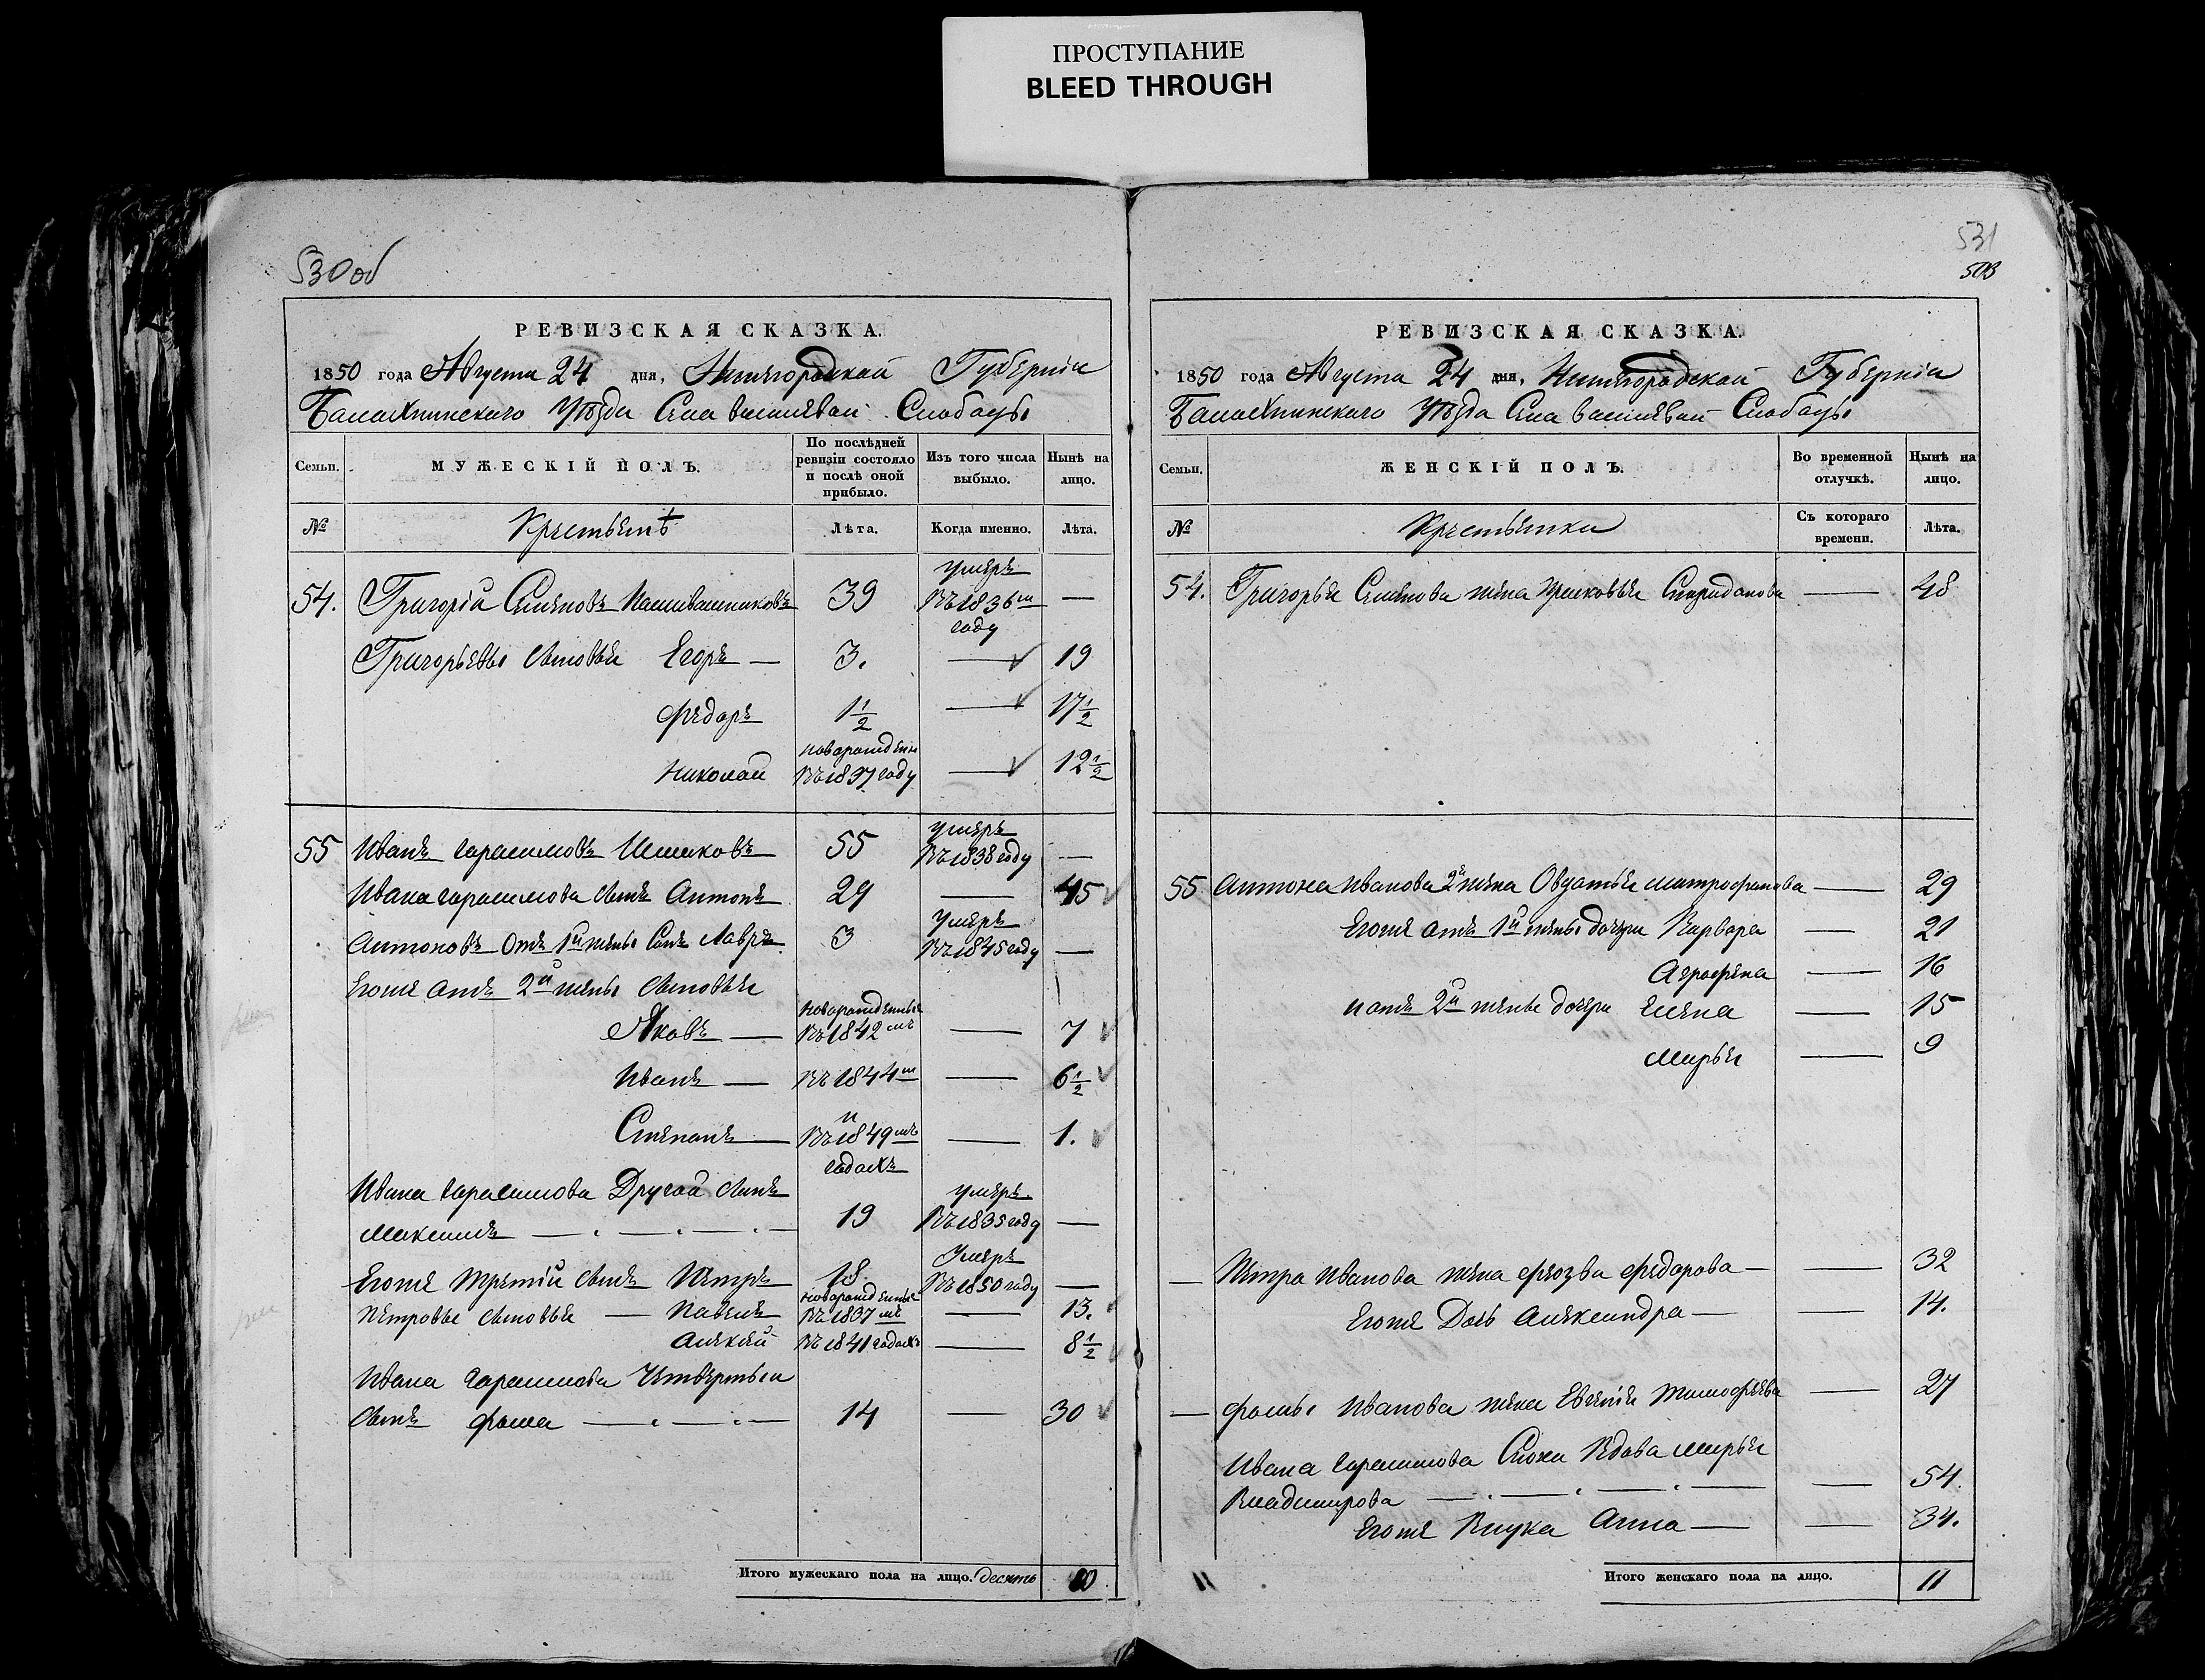 ПРОСТУПАНИЕ
BLEED THROUGH
530 об
РЕВИЗСКАЯ СКАЗКА.
1850 года Августа 24 дня, Нижегородской Губернiи
Балахнинскаго Уѣзда Села Василевой Слободы
Семьи.
МУЖЕСКIЙ ПОЛЪ.
По послѣдней ревизiи состояло и послѣ оной прибыло.
Изъ того числа выбыло.
Нынѣ на лицо.
№
Крестьянѣ
Лѣта.
Когда именно.
Лѣта.
54. Григорiй Семеновъ 39 умеръ въ 1836м году —
Григорьевы сыновья Егоръ — 3. — 19
Федоръ 1 1/2 — 17 1/2
Николай новорожденъ въ 1837 году — 12 1/2
55 Иванъ Гарасимовъ Ишаковъ 55 умеръ въ 1838 году —
Ивана Гарасимова сынъ Антонъ 29 — 45
Антоновъ отъ 1й жены сынъ Лавръ 3 умеръ въ 1845 году —
Егоже отъ 2й жены сыновья
Яковъ — новорожденные въ 1842мъ — 7
Иванъ — въ 1844м — 6 1/2
Степанъ — и въ 1849мъ годахъ — 1.
Ивана Гарасимова Другой сынъ
Максимъ — 19 умеръ въ 1835 году —
Егоже третiй сынъ Петръ 18. Умеръ въ 1850 году —
Петровы сыновья — Павелъ новорожденные въ 1837мъ — 13.
Алексѣй въ 1841 годахъ — 8 1/2
Ивана Гарасимова Четвертый
сынъ Фома — 14 — 30
Итого мужескаго пола на лицо. десять 10
531
503
РЕВИЗСКАЯ СКАЗКА.
1850 года Августа 24 дня, Нижегородской Губернiи
Балахнинскаго Уѣзда Села Василевой Слободы
Семьи.
ЖЕНСКIЙ ПОЛЪ.
Во временной отлучкѣ.
Нынѣ на лицо.
№
Крестьянки
Съ котораго времени.
Лѣта.
54. Григорья Семенова жена Прасковья Спиридонова — 48
55 Антона Иванова 2я жена Овдотья Митрофанова — 29
Егоже отъ 1й жены дочери Варвара — 21
Аграфена — 16
и отъ 2й жены дочери Елена — 15
Марья — 9
— Петра Иванова жена Федорова — 32
Егоже Дочь Александра — 14.
— Фомы Иванова жена Евгенiя Тимофеева — 27
Ивана Гарасимова Сноха Вдова Марья
Владимирова — 54.
Егоже Внука Анна — 34.
11
Итого женскаго пола на лицо. 11